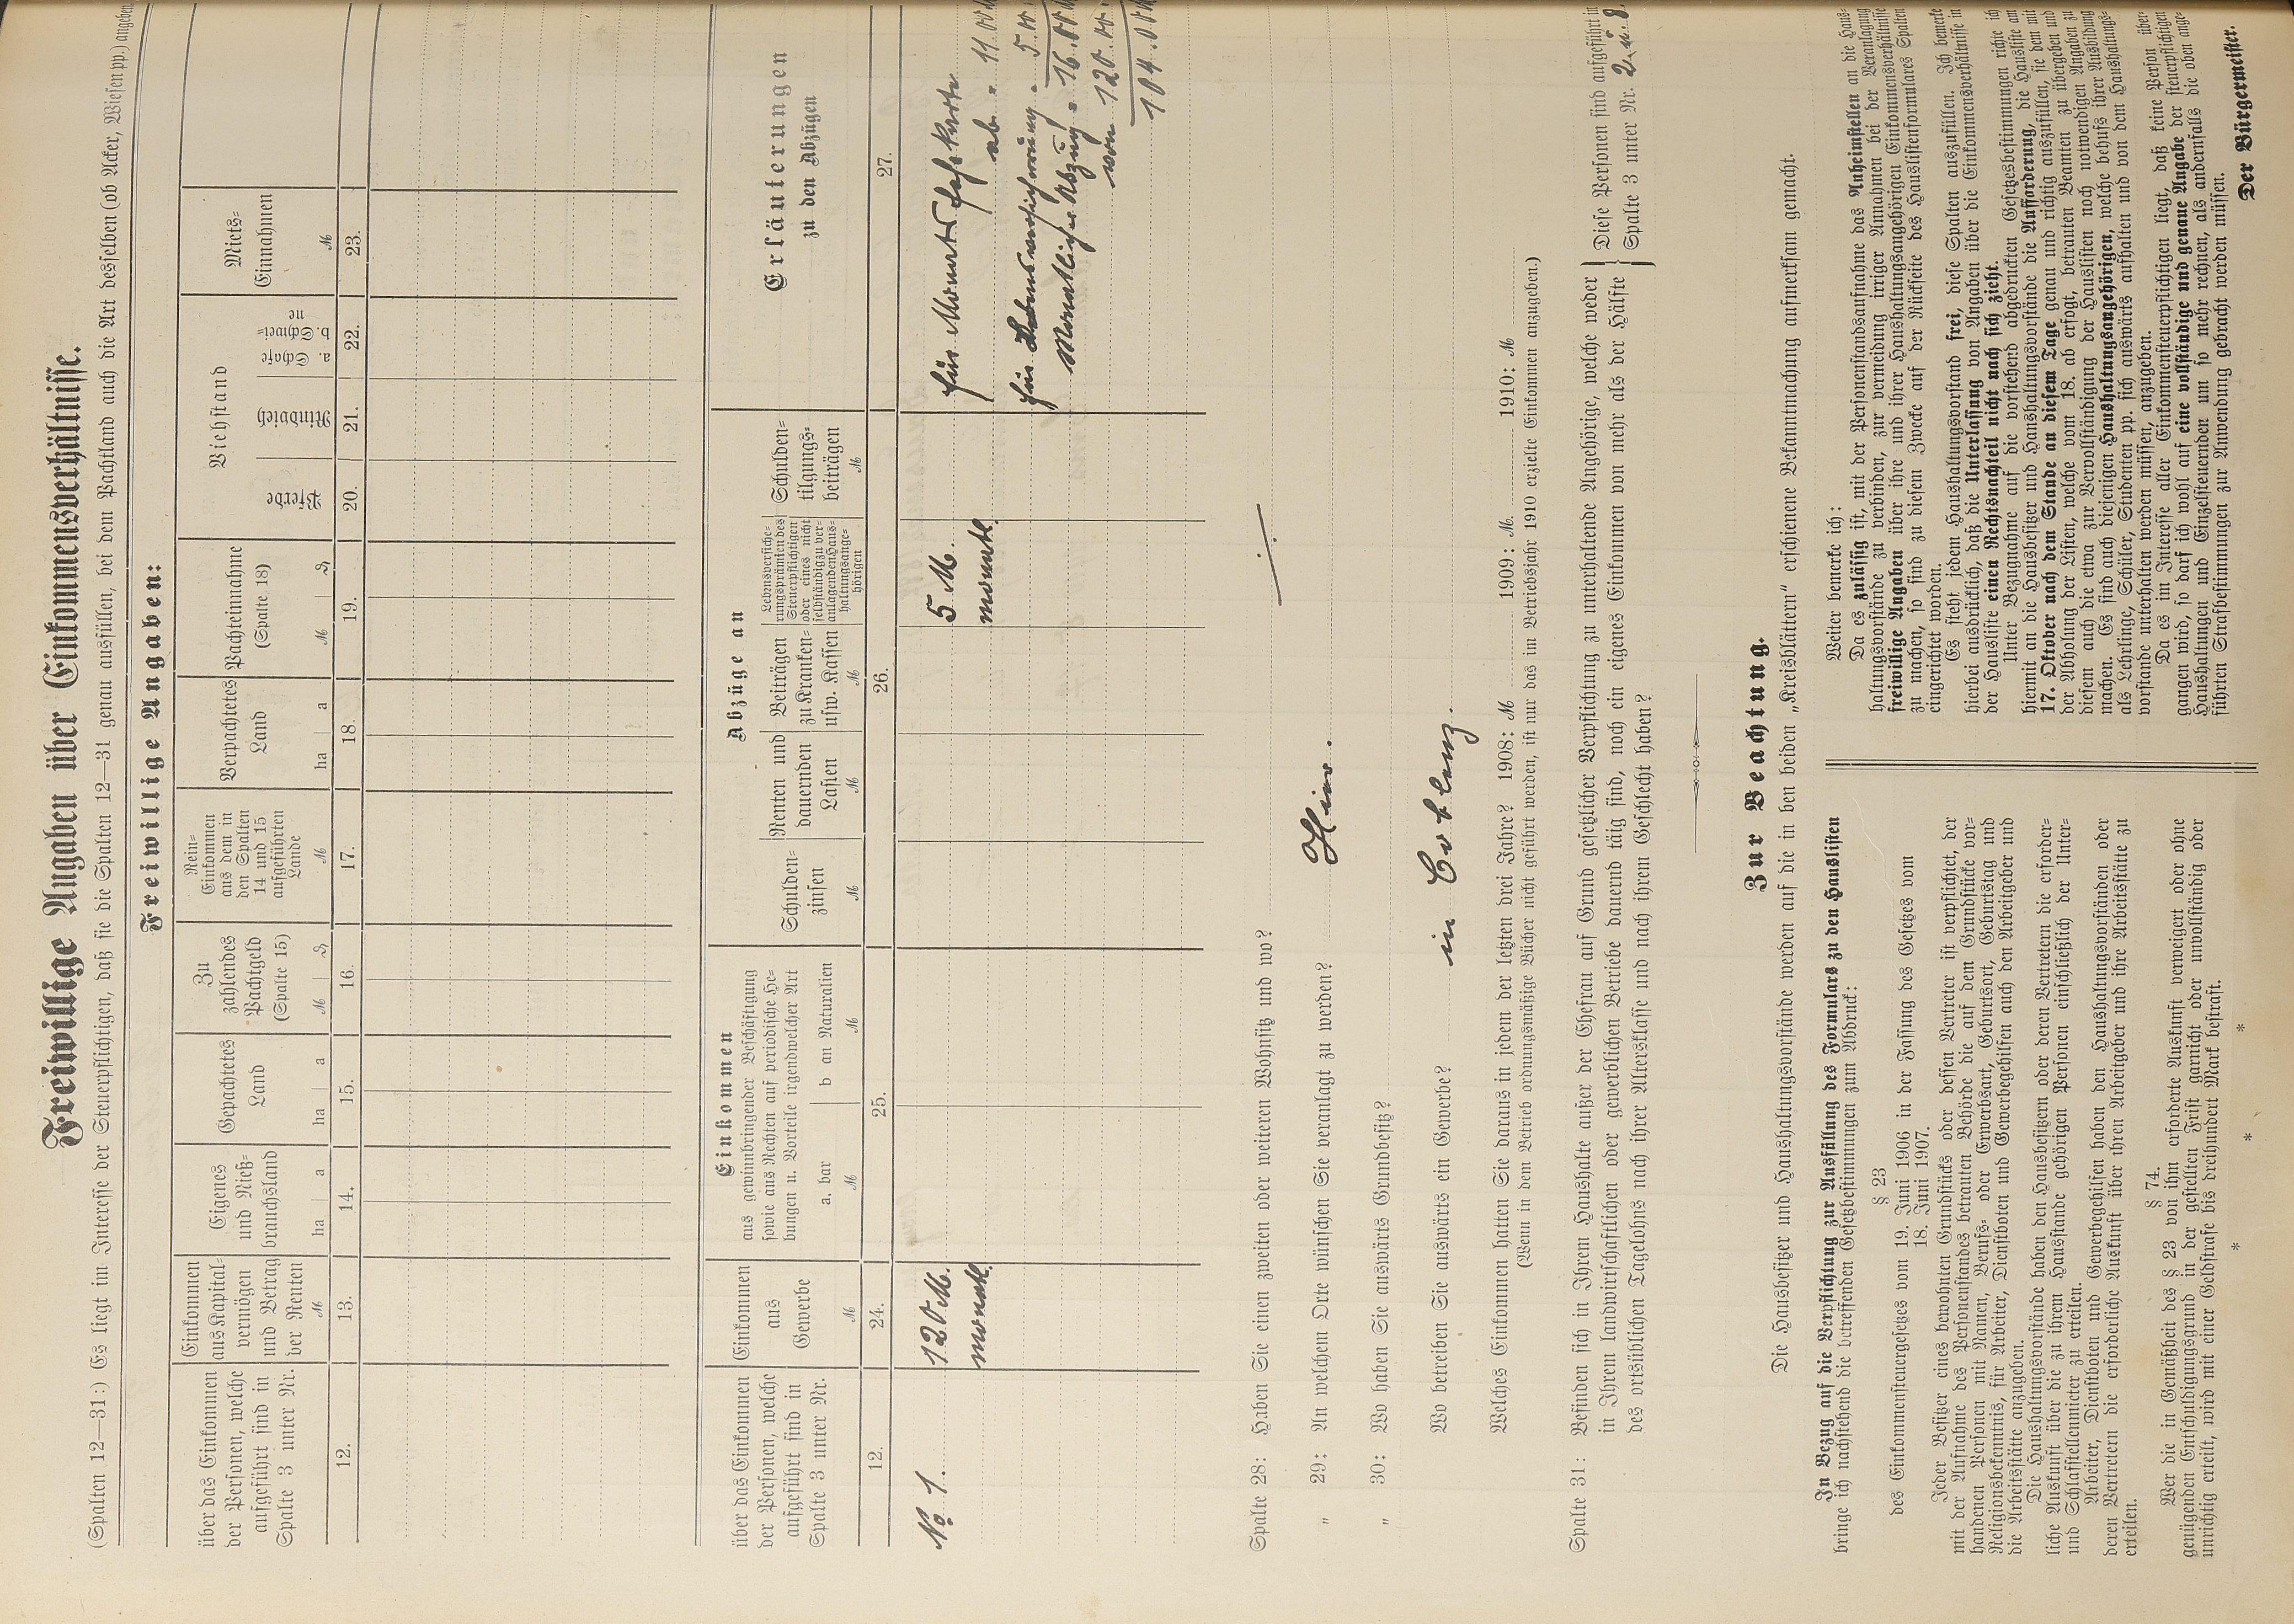 Freiwillige Angaben über Einkommensverhältnisse.
(Spalten 12—31:) Es liegt im Interesse der Steuerpflichtigen, daß sie die Spalten 12—31 genau ausfüllen, bei dem Pachtland auch die Art desselben (ob Acker, Wiesen pp.) angeben
Freiwillige Angaben:
über das Einkommen
der Personen, welche
aufgeführt sind in
Spalte 3 unter Nr.
Einkommen
aus Kapital-
vermögen
und Betrag
der Renten
M
Eigenes
und Nieß-
brauchsland
ha a
Gepachtetes
Land
ha a
Zu
zahlendes
Pachtgeld
(Spalte 15)
M ₰
Rein-
Einkommen
aus dem in
den Spalten
14 und 15
aufgeführten
Lande
M
Verpachtetes
Land
ha a
Pachteinnahme
(Spalte 18)
M ₰
Viehstand
Pferde
Rindvieh
a. Schafe
b. Schwei-
ne
Miets-
Einnahmen
M
12. 13. 14. 15. 16. 17. 18. 19. 20. 21. 22. 23.
über das Einkommen
der Personen, welche
aufgeführt sind in
Spalte 3 unter Nr.
Einkommen
aus
Gewerbe
M
Einkommen
aus gewinnbringender Beschäftigung
sowie aus Rechten auf periodische He-
bungen u. Vorteile irgendwelcher Art
a. bar b an Naturalien
M M
Abzüge an
Schulden-
zinsen
M
Renten und
dauernden
Lasten
M
Beiträgen
zu Kranken-
usw. Kassen
M
Lebensversiche-
rungsprämien des
Steuerpflichtigen
oder eines nicht
selbständig zu ver-
anlagenden Haus-
haltungsange-
hörigen
Schulden-
tilgungs-
beiträgen
M
Erläuterungen
zu den Abzügen
12. 24. 25. 26. 27.
No 1. 120 M. 5 M. für Monatsfahrkarte
monatl. monatl. ab = 11.00 M
für Lebensversicherung = 5.00
Monatlicher Abzug = 16.00 M
von 120.00
104.00 M
Spalte 28: Haben Sie einen zweiten oder weiteren Wohnsitz und wo?
„ 29: An welchem Orte wünschen Sie veranlagt zu werden? Hier.
„ 30: Wo haben Sie auswärts Grundbesitz?
Wo betreiben Sie auswärts ein Gewerbe? in Coblenz.
Welches Einkommen hatten Sie daraus in jedem der letzten drei Jahre? 1908: M 1909: M. 1910: M
(Wenn in dem Betrieb ordnungsmäßige Bücher nicht geführt werden, ist nur das im Betriebsjahr 1910 erzielte Einkommen anzugeben.)
Spalte 31: Befinden sich in Ihrem Haushalte außer der Ehefrau auf Grund gesetzlicher Verpflichtung zu unterhaltende Angehörige, welche weder
in Ihrem landwirtschaftlichen oder gewerblichen Betriebe dauernd tätig sind, noch ein eigenes Einkommen von mehr als der Hälfte
des ortsüblichen Tagelohns nach ihrer Altersklasse und nach ihrem Geschlecht haben?
Diese Personen sind aufgeführt in
Spalte 3 unter Nr. 2 u. 8.
Zur Beachtung.
Die Hausbesitzer und Haushaltungsvorstände werden auf die in ben beiden „Kreisblättern“ erschienene Bekanntmachung aufmerksam gemacht.
In Bezug auf die Verpflichtung zur Ausfüllung des Formulars zu den Hauslisten
bringe ich nachstehend die betreffenden Gesetzbestimmungen zum Abdruck:
§ 23
des Einkommensteuergesetzes vom 19. Juni 1906 in der Fassung des Gesetzes vom
18. Juni 1907.
Jeder Besitzer eines bewohnten Grundstücks oder dessen Vertreter ist verpflichtet, der
mit der Aufnahme des Personenstandes betrauten Behörde die auf dem Grundstücke vor-
handenen Personen mit Namen, Berufs- oder Erwerbsart, Geburtsort, Geburtstag und
Religionsbekenntnis, für Arbeiter, Dienstboten und Gewerbegehilfen auch den Arbeitgeber und
die Arbeitsstätte anzugeben.
Die Haushaltungsvorstände haben den Hausbesitzern oder deren Vertretern die erforder-
liche Auskunft über die zu ihrem Hausstande gehörigen Personen einschließlich der Unter-
und Schlafstellenmieter zu erteilen.
Arbeiter, Dienstboten und Gewerbegehilfen haben den Haushaltungsvorständen oder
deren Vertretern die erforderliche Auskunft über ihren Arbeitgeber und ihre Arbeitsstätte zu
erteilen.
§ 74.
Wer die in Gemäßheit des § 23 von ihm erforderte Auskunft verweigert oder ohne
genügenden Entschuldigungsgrund in der gestellten Frist garnicht oder unvollständig oder
unrichtig erteilt, wird mit einer Geldstrafe bis dreihundert Mark bestraft.
* * * *
Weiter bemerke ich:
Da es zulässig ist, mit der Personenstandsaufnahme das Anheimstellen an die Haus-
haltungsvorstände zu verbinden, zur vermeidung irriger Annahmen bei der Veranlagung
freiwillige Angaben über ihre und ihrer Haushaltungsangehörigen Einkommensverhältnisse
zu machen, so sind zu diesem Zwecke auf der Rückseite des Hauslistenformulares Spalten
eingerichtet worden.
Es steht jedem Haushaltungsvorstand frei, diese Spalten auszufüllen. Ich bemerke
hierbei ausdrücklich, daß die Unterlassung von Angaben über die Einkommensverhältnisse in
der Hausliste einen Rechtsnachteil nicht nach sich zieht.
Unter Bezugnahme auf die vorstehend abgedruckten Gesetzesbestimmungen richte ich
hiermit an die Hausbesitzer und Haushaltungsvorstände die Aufforderung, die Hausliste am
17. Oktober nach dem Stande an diesem Tage genau und richtig auszufüllen, sie dem mit
der Abholung der Listen, welche vom 18. ab erfolgt, betrauten Beamten zu übergeben und
diesem auch die etwa zur Vervollständigung der Hauslisten noch notwendigen Angaben zu
machen. Es sind auch diejenigen Haushaltungsangehörigen, welche behufs ihrer Ausbildung
als Lehrlinge, Schüler, Studenten pp. sich auswärts aufhalten und von dem Haushaltungs-
vorstande unterhalten werden müssen, anzugeben.
Da es im Interesse aller Einkommensteuerpflichtigen liegt, daß keine Person über-
gangen wird, so darf ich wohl auf eine vollständige und genaue Angabe der steuerpflichtigen
Haushaltungen und Einzelsteuernden um so mehr rechnen, als andernfalls die oben ange-
führten Strafbestimmungen zur Anwendung gebracht werden müssen.
Der Bürgermeister.